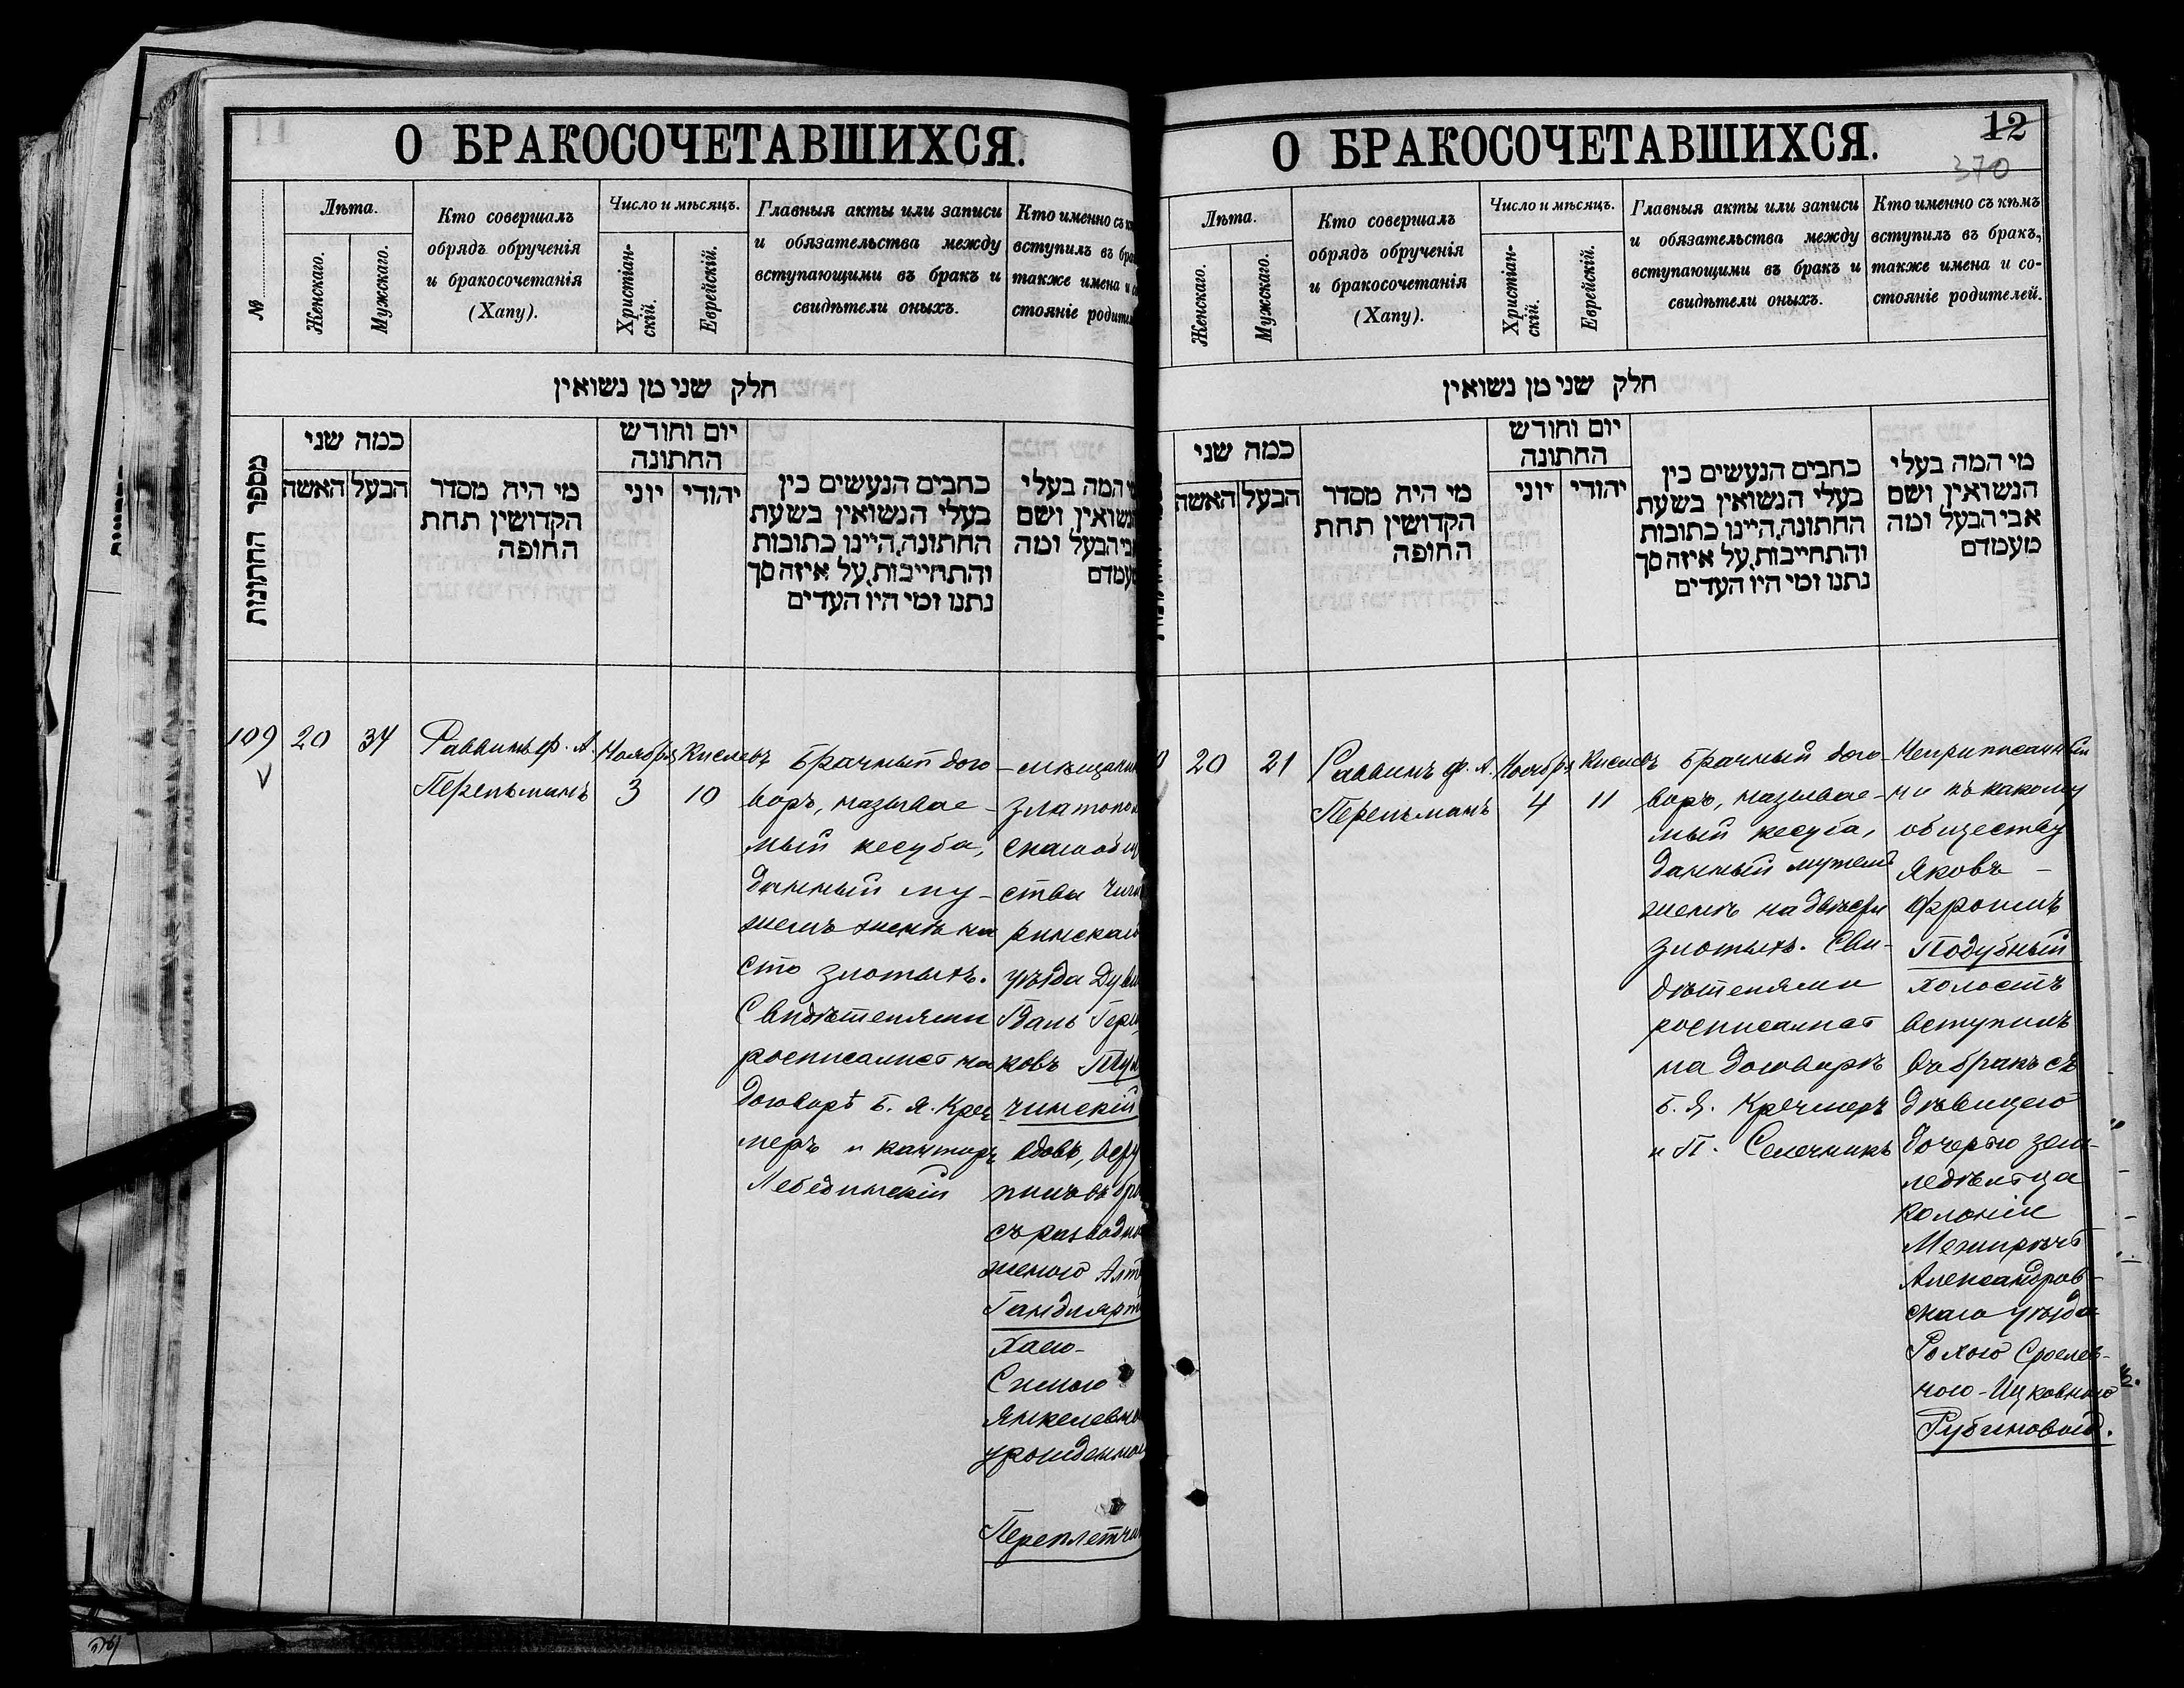 О БРАКОСОЧЕТАВШИХСЯ.
№
Лѣта.
Женскаго.
Мужскаго.
Кто совершалъ
обрядъ обрученія
и бракосочетанія
(Хапу).
Число и мѣсяцъ.
Христіан-
скій.
Еврейскій.
Главныя акты или записи
и обязательства между
вступающими въ бракъ и
свидѣтели оныхъ.
Кто именно съ
вступилъ въ
также имена и
стояніе
חלק שני מן נשואין
מספר החתונות
כמה שני
האשה
הבעל
מי היה מסדר
הקדושין תחת
החופה
יום וחודש
החתונה
יוני
יהודי
כתבים הנעשים בין
בעלי הנשואין בשעת
החתונה, היינו כתובות
והתחייבות, על איזה סך
נתנו ומי היו העדים
המה בעלי
ושם
הבעל ומה
109
20
34
Раввинъ Ф. А.
Перельманъ
Ноября
3
Кислевъ
10
Брачный дого-
воръ, называе-
мый кесуба,
данный му-
жемъ женѣ на
сто злотыхъ.
Свидѣтелями
росписались на
договорѣ Б. Я. Креч
меръ и канторъ
Лебединскій
ства
уѣзда
ковъ
чинскій
вдовъ,
женою
Хаею-
Симою
О БРАКОСОЧЕТАВШИХСЯ.
12
370
Лѣта.
Женскаго.
Мужскаго.
Кто совершалъ
обрядъ обрученія
и бракосочетанія
(Хапу).
Число и мѣсяцъ.
Христіан-
скій.
Еврейскій.
Главныя акты или записи
и обязательства между
вступающими въ бракъ и
свидѣтели оныхъ.
Кто именно съ кѣмъ
вступилъ въ бракъ,
также имена и со-
стояніе родителей.
חלק שני מן נשואין
כמה שני
האשה
הבעל
מי היה מסדר
הקדושין תחת
החופה
יום וחודש
החתונה
יוני
יהודי
כתבים הנעשים בין
בעלי הנשואין בשעת
החתונה, היינו כתובות
והתחייבות, על איזה סך
נתנו ומי היו העדים
מי המה בעלי
הנשואין ושם
אבי הבעל ומה
מעמדם
20
21
Раввинъ Ф. А.
Перельманъ
Ноября
4
Кислевъ
11
Брачный дого-
воръ, называе-
мый кесуба,
данный мужемъ
женѣ на двѣсти
злотыхъ. Сви-
дѣтелями
росписались
на договорѣ
Б. Я. Кречмеръ
и П. Селечникъ
Неприписанный
ни къ какому
обществу
Яковъ -
Фроимъ
Подубный
холостъ
вступилъ
въ бракъ съ
дѣвицею
дочерью зем-
ледѣльца
Колоніи
Межирѣчь
Александров-
скаго уѣзда
Рохою Сроелев-
ною-Ицковною
Рубиновой.